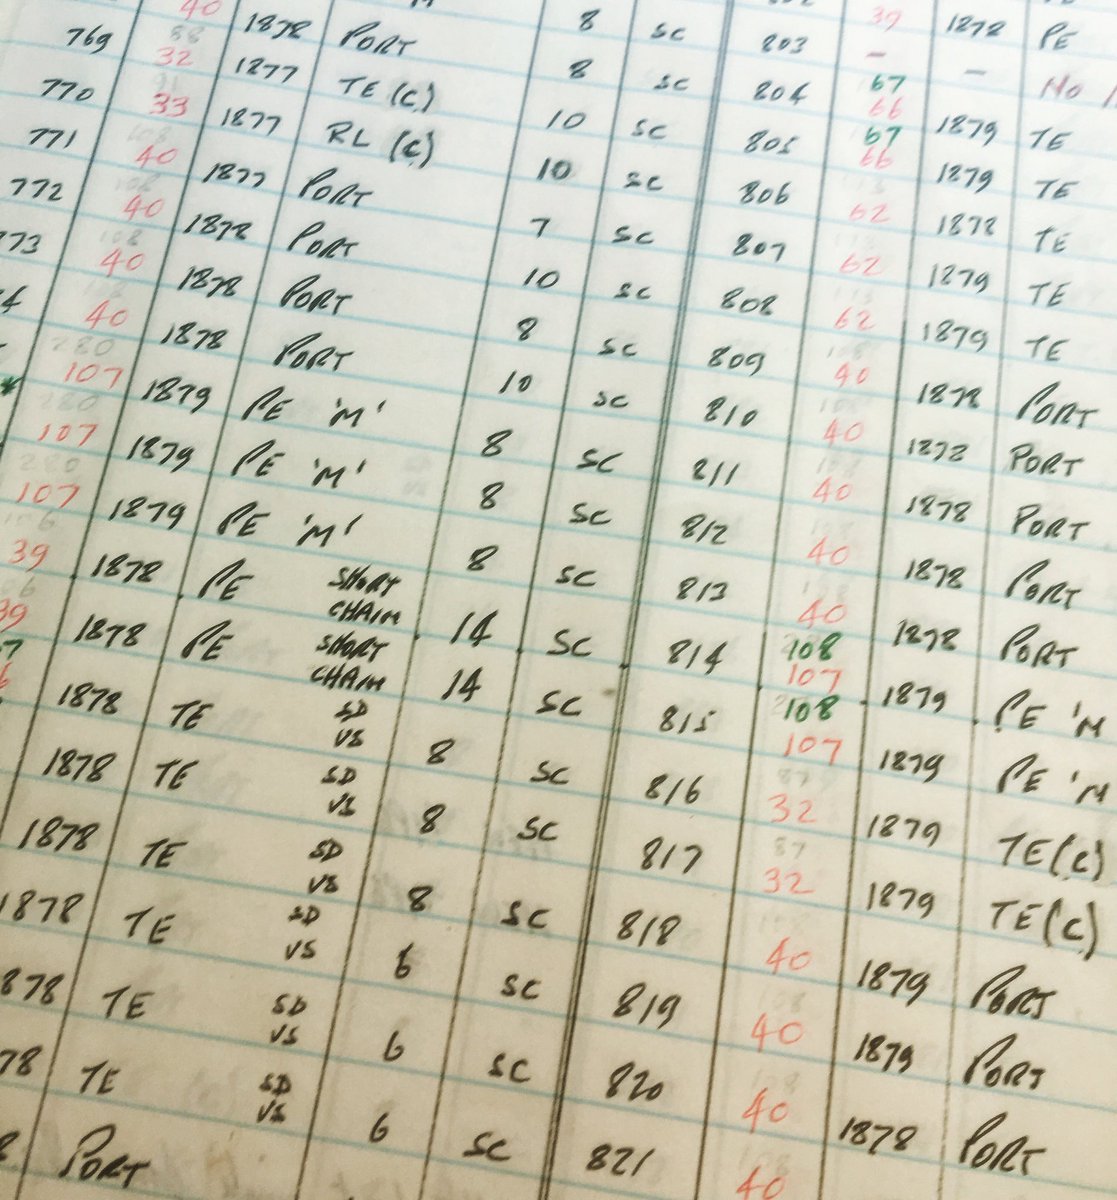 39 1878 PE
8 SC 803 - - No
40 1878 PORT 8 SC 804 67 66 1879 TE
769 32 1877 TE (C) 10 SC 805 67 66 1879 TE
770 33 1877 RL (C) 10 SC 806 62 1878 TE
771 40 1877 PORT 7 SC 807 62 1879 TE
772 40 1878 PORT 10 SC 808 62 1879 TE
773 40 1878 PORT 8 SC 809 40 1878 PORT
4 40 1878 PORT 10 SC 810 40 1878 PORT
* 107 1879 PE 'M' 8 SC 811 40 1878 PORT
107 1879 PE 'M' 8 SC 812 40 1878 PORT
107 1879 PE 'M' 8 SC 813 40 1878 PORT
39 1878 PE SHORT CHAIN 14 SC 814 108 107 1879 PE 'M
39 1878 PE SHORT CHAIN 14 SC 815 108 107 1879 PE 'M
1878 TE SD VS 8 SC 816 32 1879 TE(C)
1878 TE SD VS 8 SC 817 32 1879 TE(C)
1878 TE SD VS 8 SC 818 40 1879 PORT
1878 TE SD VS 6 SC 819 40 1879 PORT
878 TE SD VS 6 SC 820 40 1878 PORT
78 TE SD VS 6 SC 821 40
8 PORT